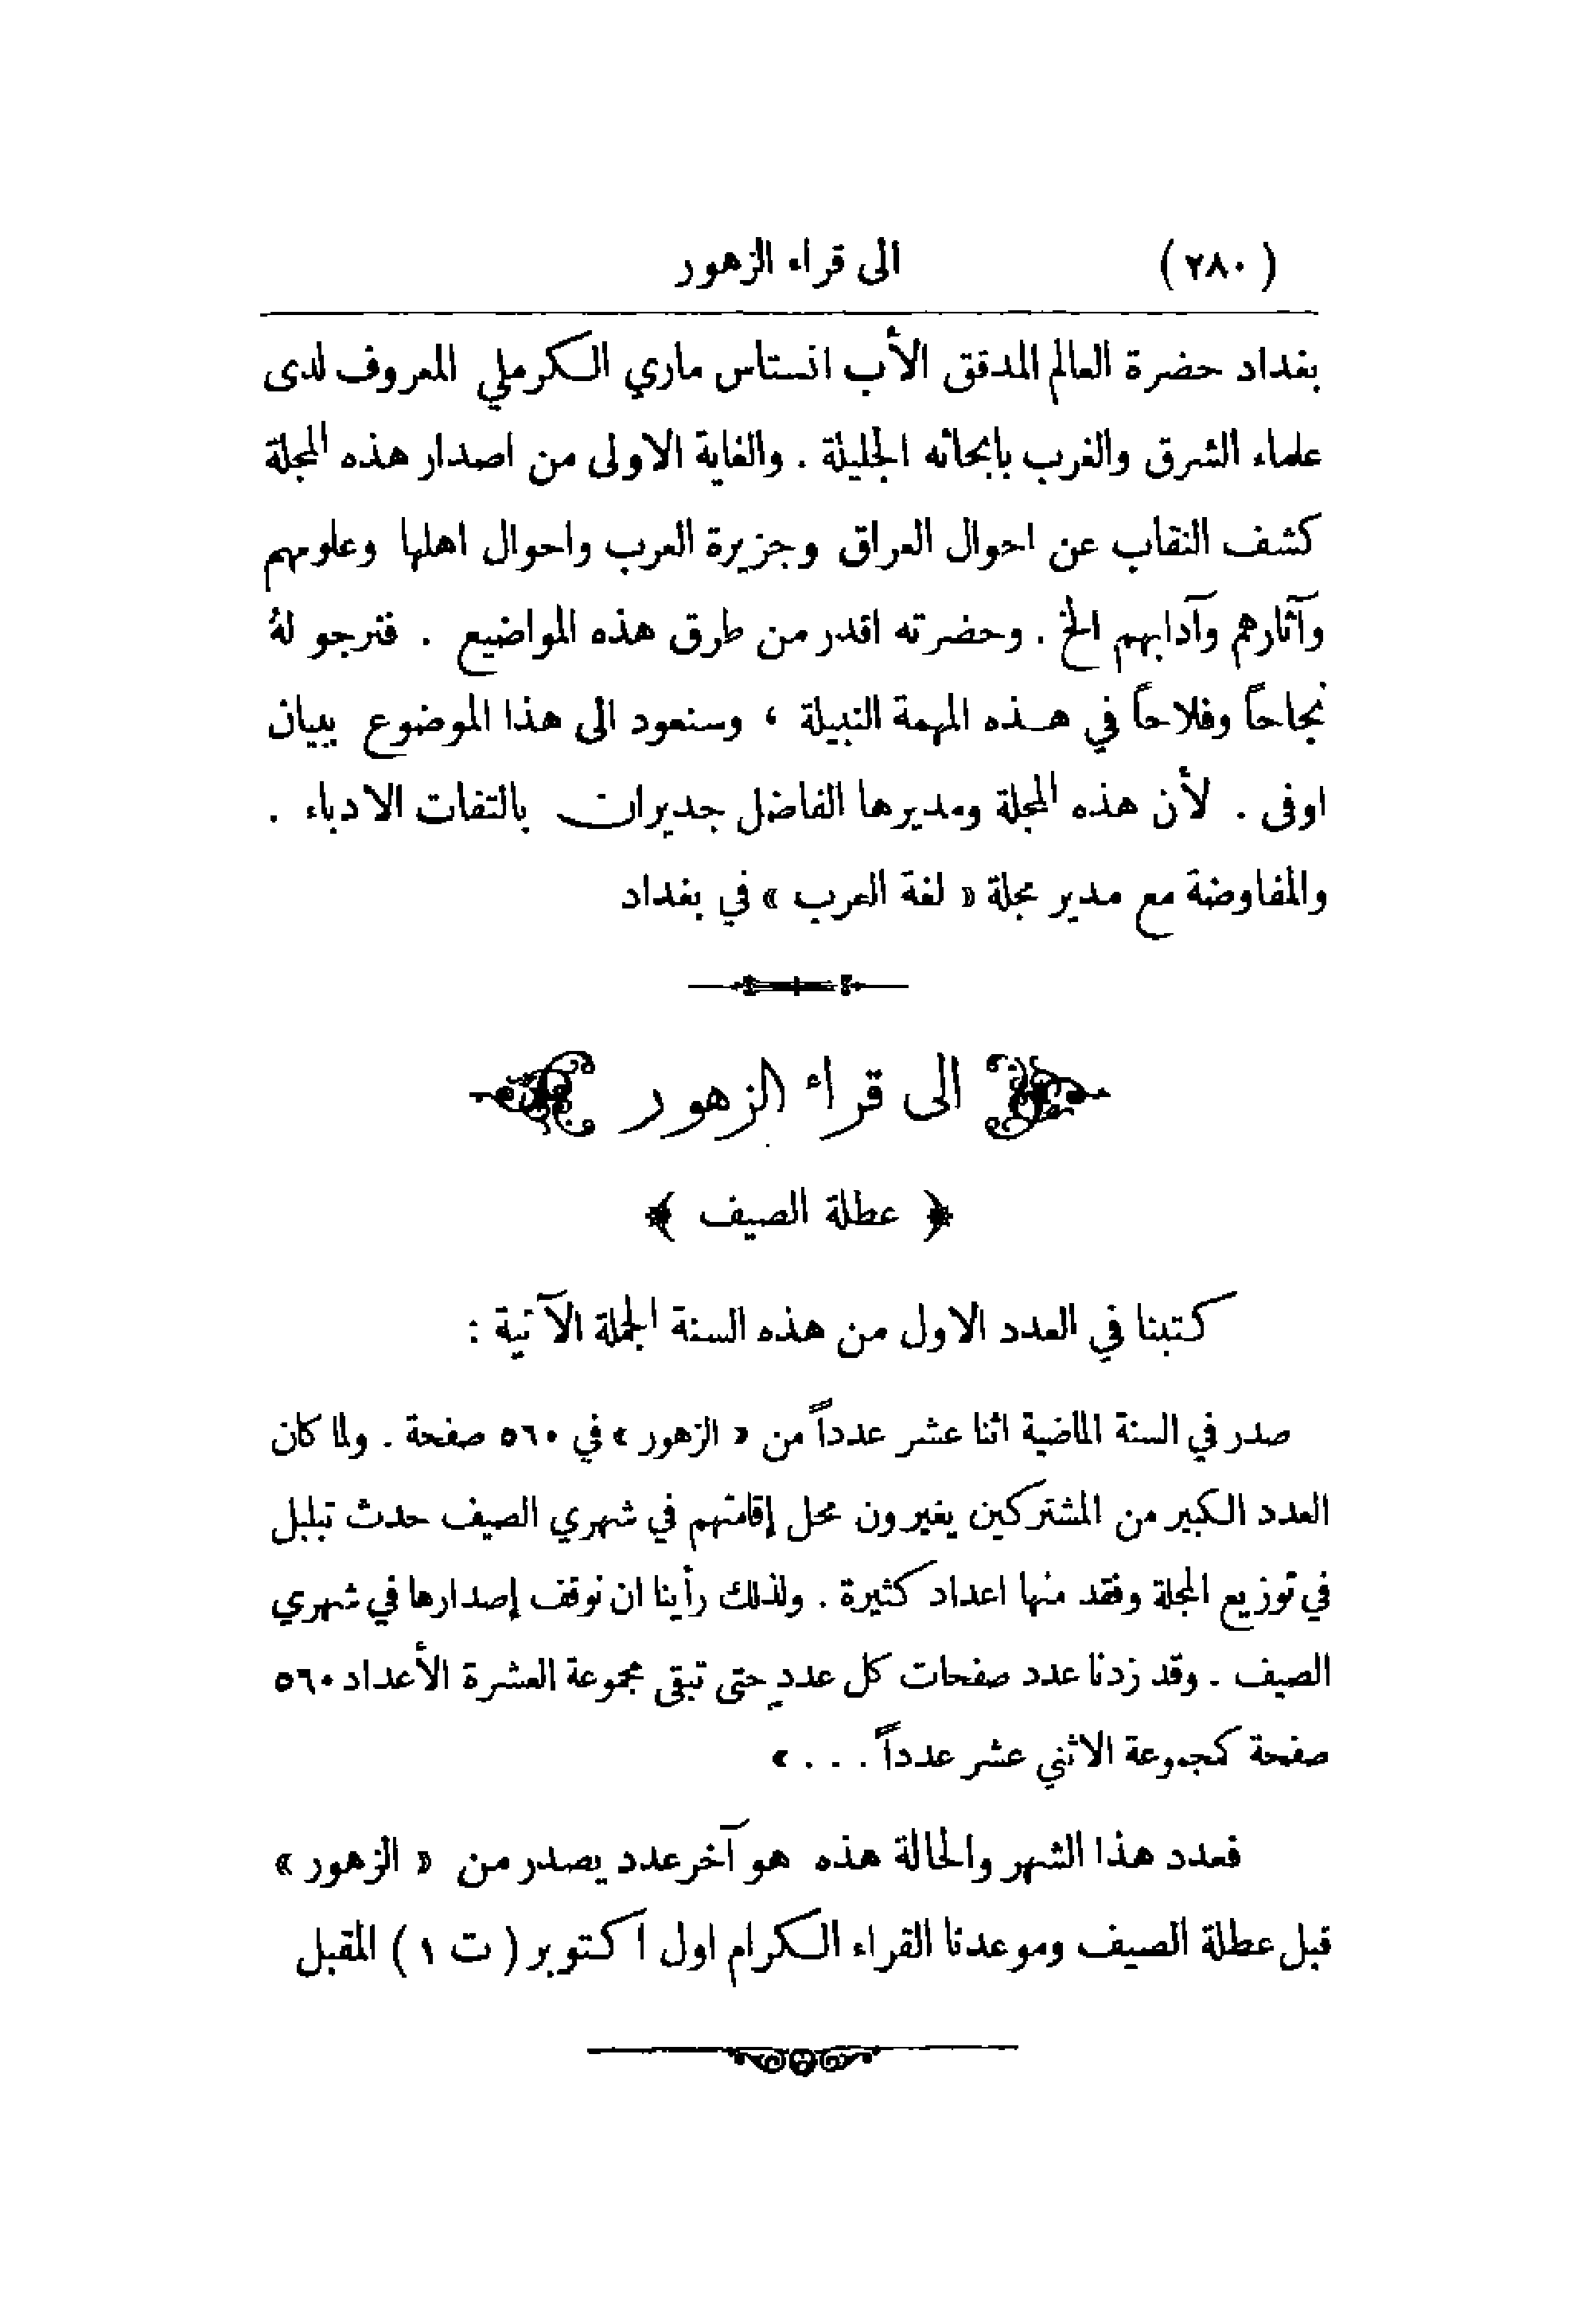 (٢٨٠) الى قراء الزهور
بغداد حضرة العالم المدقق الأب انستاس ماري الكرملي المعروف لدى
علماء الشرق والغرب بابحاثه الجليلة . والغاية الاولى من اصدار هذه المجلة
كشف النقاب عن احوال العراق وجزيرة العرب واحوال اهلها وعلومهم
وآثارهم وآدابهم الخ . وحضرته اقدر من طرق هذه المواضيع . فنرجو لهُ
نجاحاً وفلاحاً في هذه المهمة النبيلة ، وسنعود الى هذا الموضوع ببيان
اوفى . لأن هذه المجلة ومديرها الفاضل جديران بالتفات الادباء .
والمفاوضة مع مدير مجلة « لغة العرب » في بغداد
الى قراء الزهور
﴿ عطلة الصيف ﴾
كتبنا في العدد الاول من هذه السنة الجملة الآتية :
صدر في السنة الماضية اثنا عشر عدداً من « الزهور » في ٥٦٠ صفحة . ولما كان
العدد الكبير من المشتركين يغيرون محل إقامتهم في شهري الصيف حدث تبلبل
في توزيع المجلة وفقد منها اعداد كثيرة . ولذلك رأينا ان نوقف إصدارها في شهري
الصيف . وقد زدنا عدد صفحات كل عددٍ حتى تبقى مجموعة العشرة الأعداد ٥٦٠
صفحة كمجموعة الاثني عشر عدداً . . . »
فعدد هذا الشهر والحالة هذه هو آخر عدد يصدر من « الزهور »
قبل عطلة الصيف وموعدنا القراء الكرام اول اكتوبر ( ت ١ ) المقبل